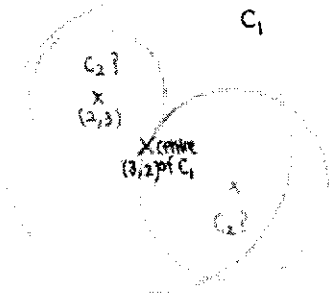 C₁
C₂ ?
x
(2,3)
X centre
(3,2) of C₁
x
C₂ ?